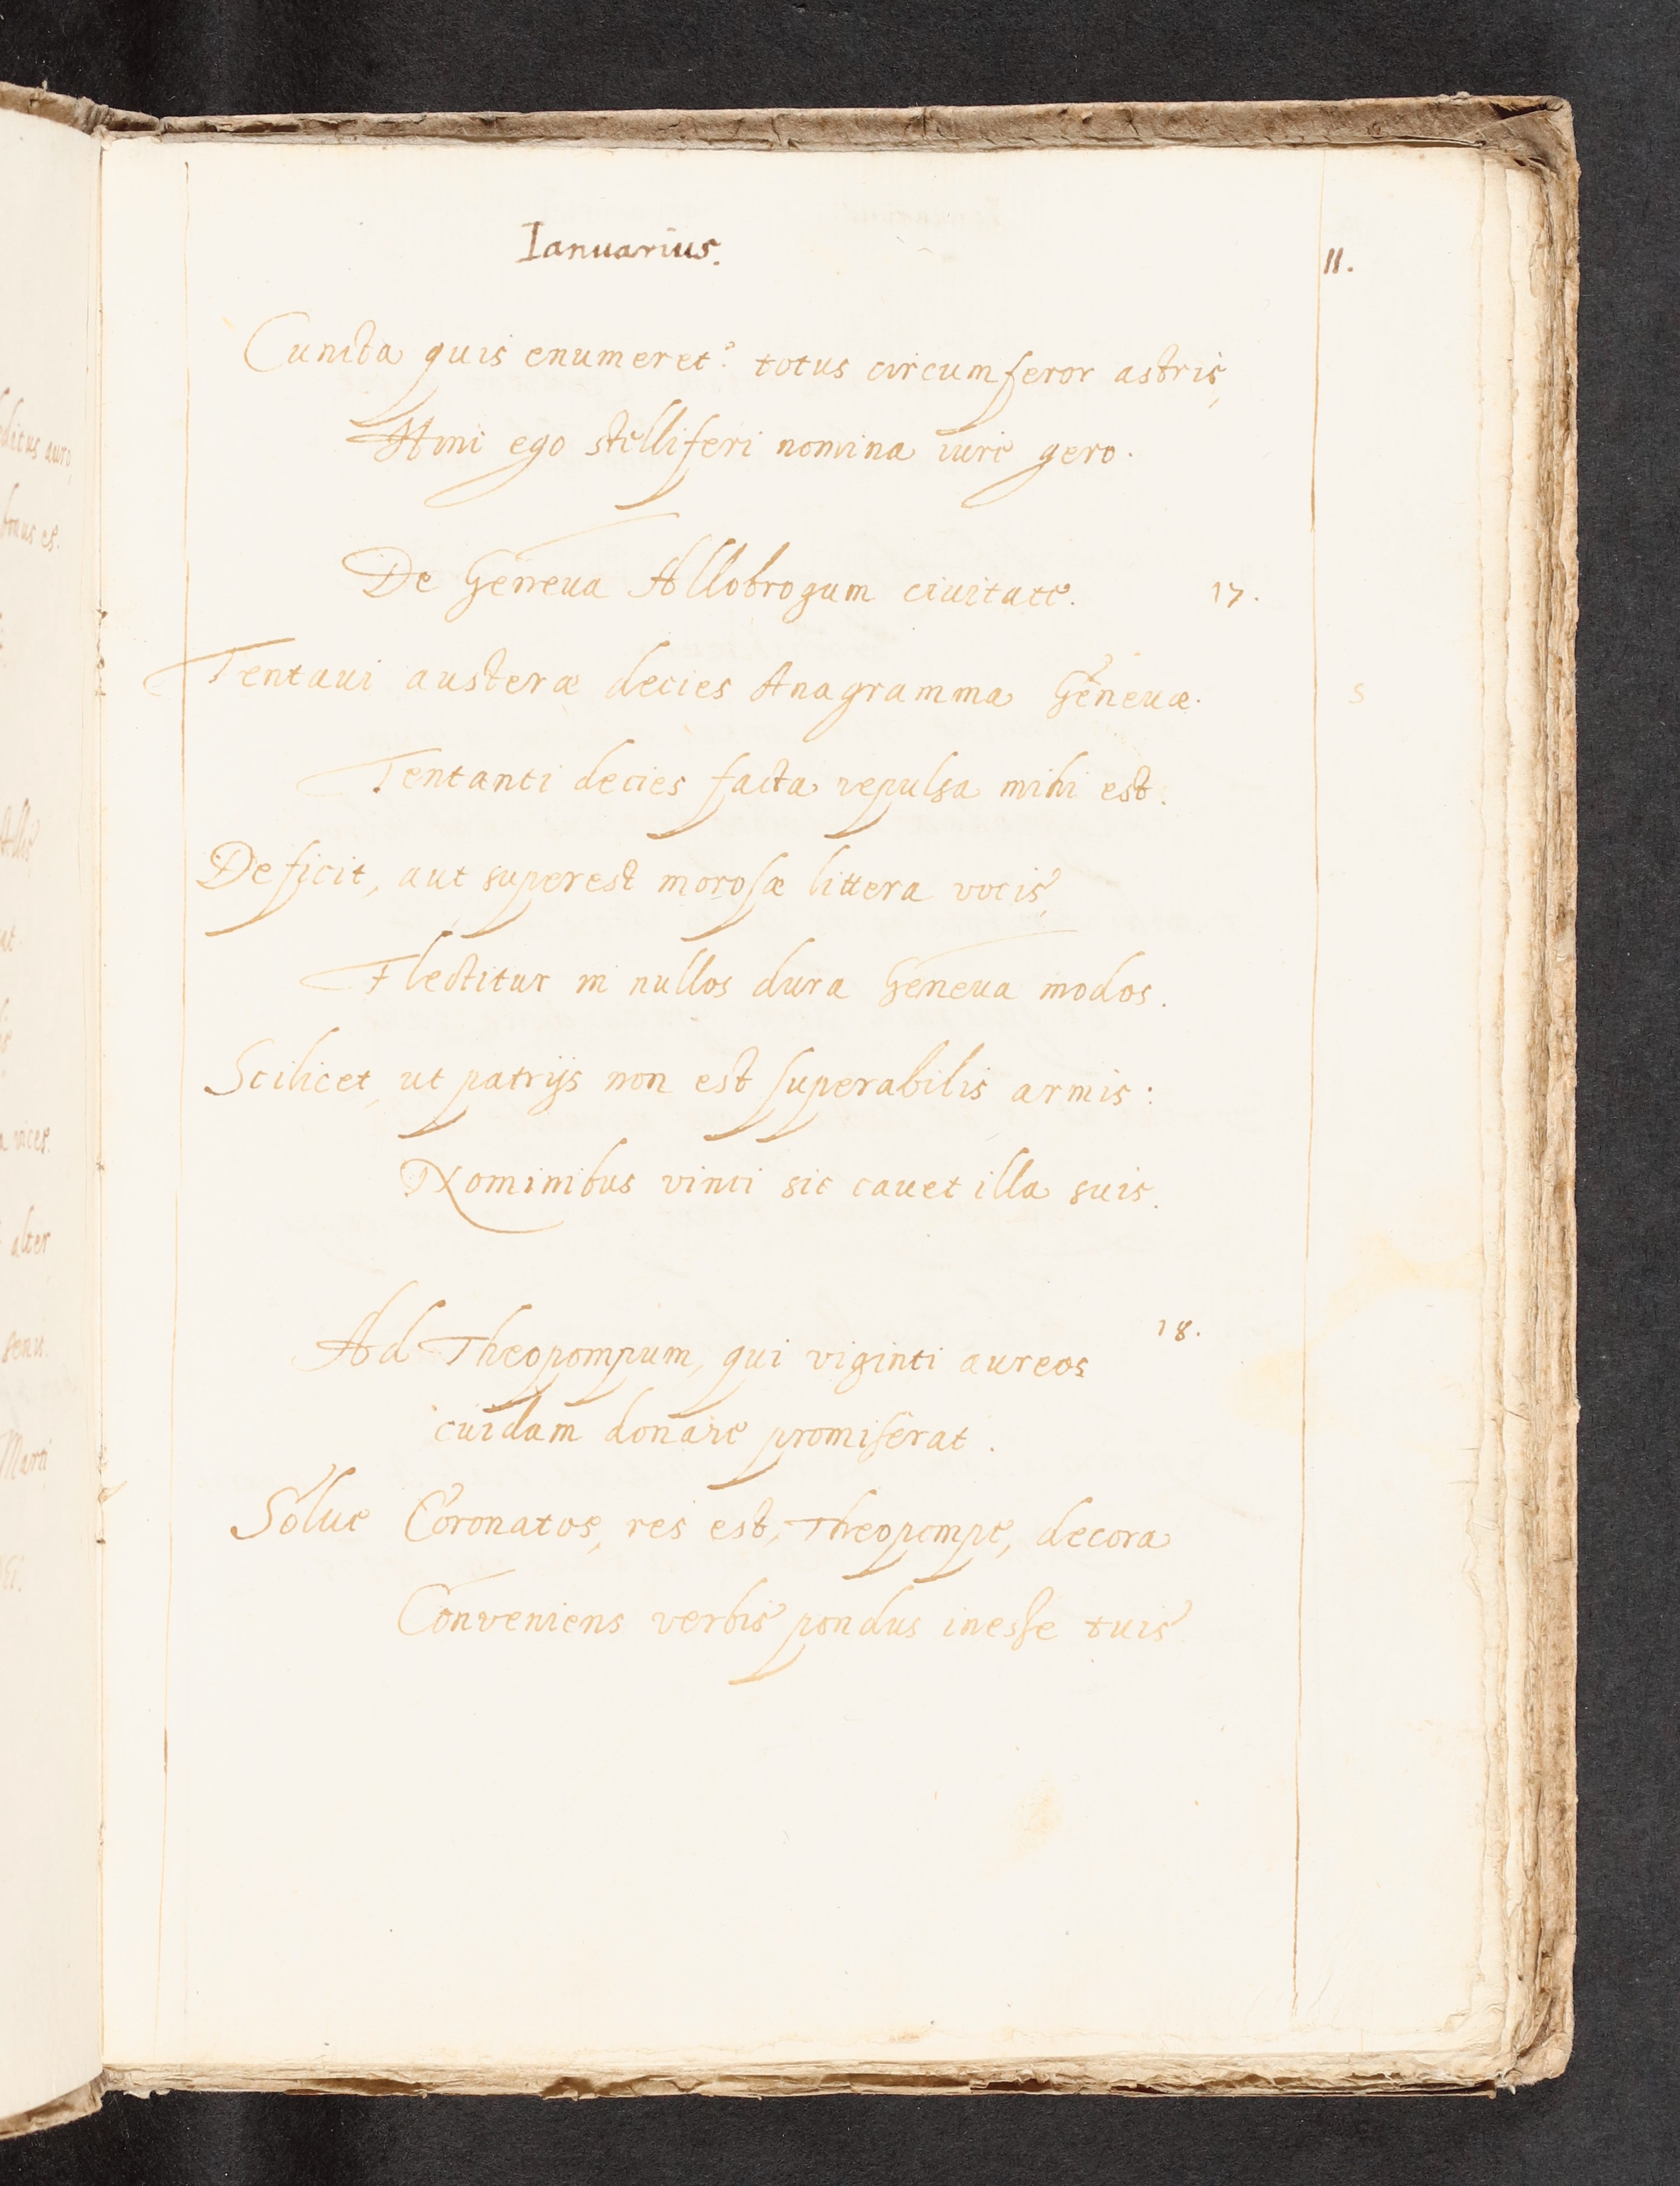 Ianuarius.
11.
Cuncta quis enumeret? totus circumferor astris,
Anni ego stelliferi nomina iure gero.
De Geneua Allobrogum ciuitate. 17.
Tentaui austeræ decies Anagramma Geneuæ.
5
Tentanti decies facta repulsa mihi est.
Deficit, aut superest morosæ littera vocis,
Flectitur in nullos dura Geneua modos.
Scilicet, ut patrijs non est superabilis armis:
Nominibus vinci sic cauet illa suis.
Ad Theopompum, qui viginti aureos 18.
cuidam donare promiserat.
Solue Coronatos, res est, Theopompe, decora
Conveniens verbis pondus inesse tuis